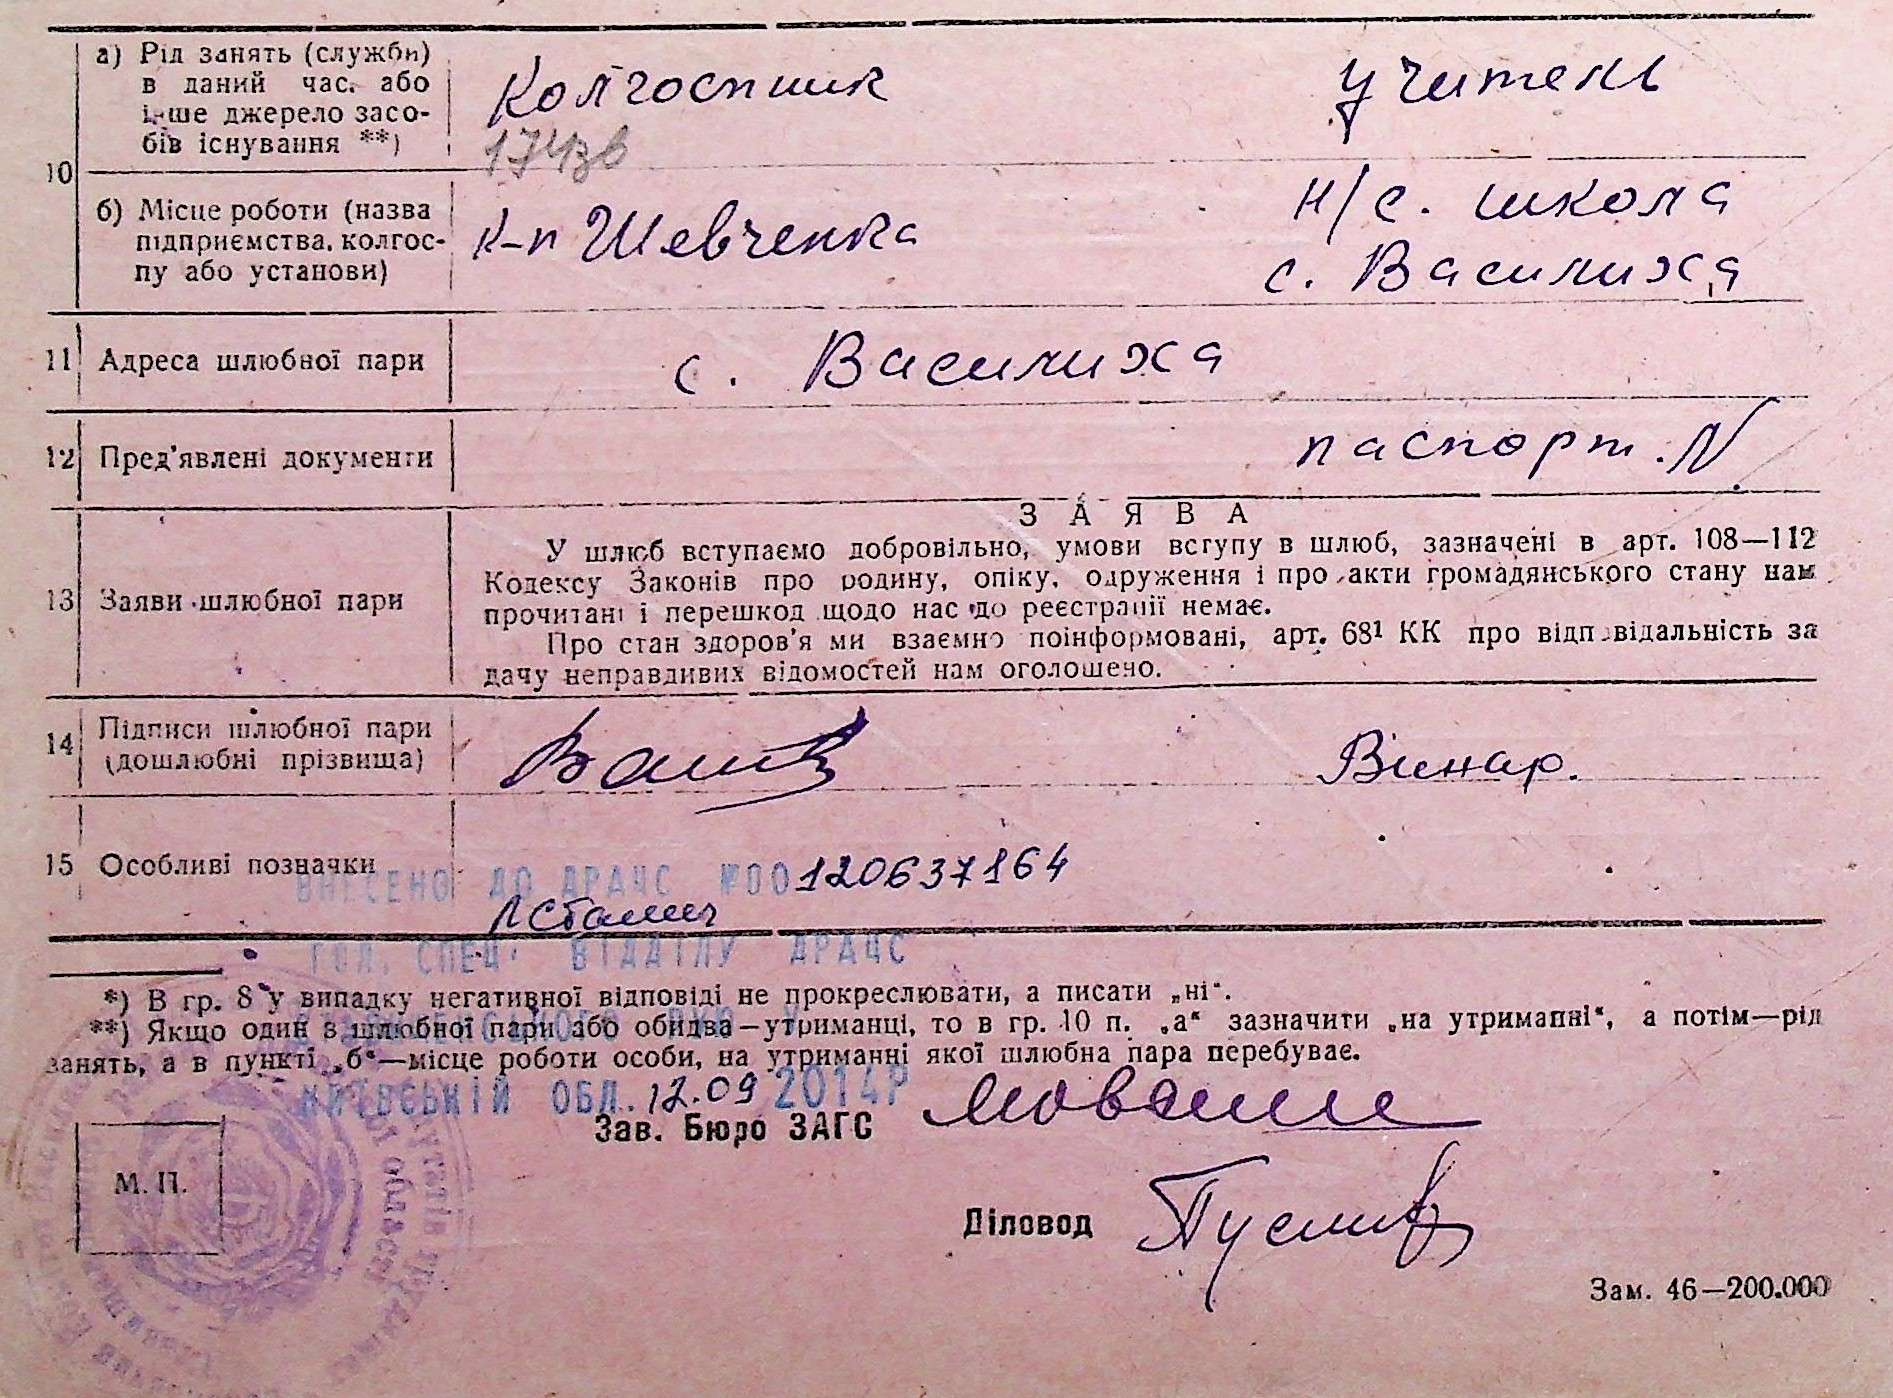 10
а) Рід занять (служби)
в даний час, або
інше джерело засо-
бів існування **)
Колгоспник
учитель
б) Місце роботи (назва
підприємства, колгос-
пу або установи)
к-п Шевченка
н/с. школа
с. Василиха
11 Адреса шлюбної пари
с. Василиха
12 Пред'явлені документи
паспорт. N
13 Заяви шлюбної пари
ЗАЯВА
У шлюб вступаємо добровільно, умови вступу в шлюб, зазначені в арт. 108—112
Кодексу Законів про родину, опіку, одруження і про акти громадянського стану нам
прочитані і перешкод щодо нас до реєстрації немає.
Про стан здоров'я ми взаємно поінформовані, арт. 68¹ КК про відповідальність за
дачу неправдивих відомостей нам оголошено.
14 Підписи шлюбної пари
(дошлюбні прізвища)
Винар.
15 Особливі позначки
ВНЕСЕНО ДО ДРАЦС №00120637164
ГОЛ. СПЕЦ. ВІДДІЛУ ДРАЦС
*) В гр. 8 у випадку негативної відповіді не прокреслювати, а писати „ні“.
**) Якщо один з шлюбної пари або обидва—утриманці, то в гр. 10 п. „а“ зазначити „на утриманні“, а потім—рід
занять, а в пункті „б“—місце роботи особи, на утриманні якої шлюбна пара перебуває.
КИЇВСЬКІЙ ОБЛ. 12.09 2014Р
Зав. Бюро ЗАГС
М. П.
Діловод
Зам. 46—200.000